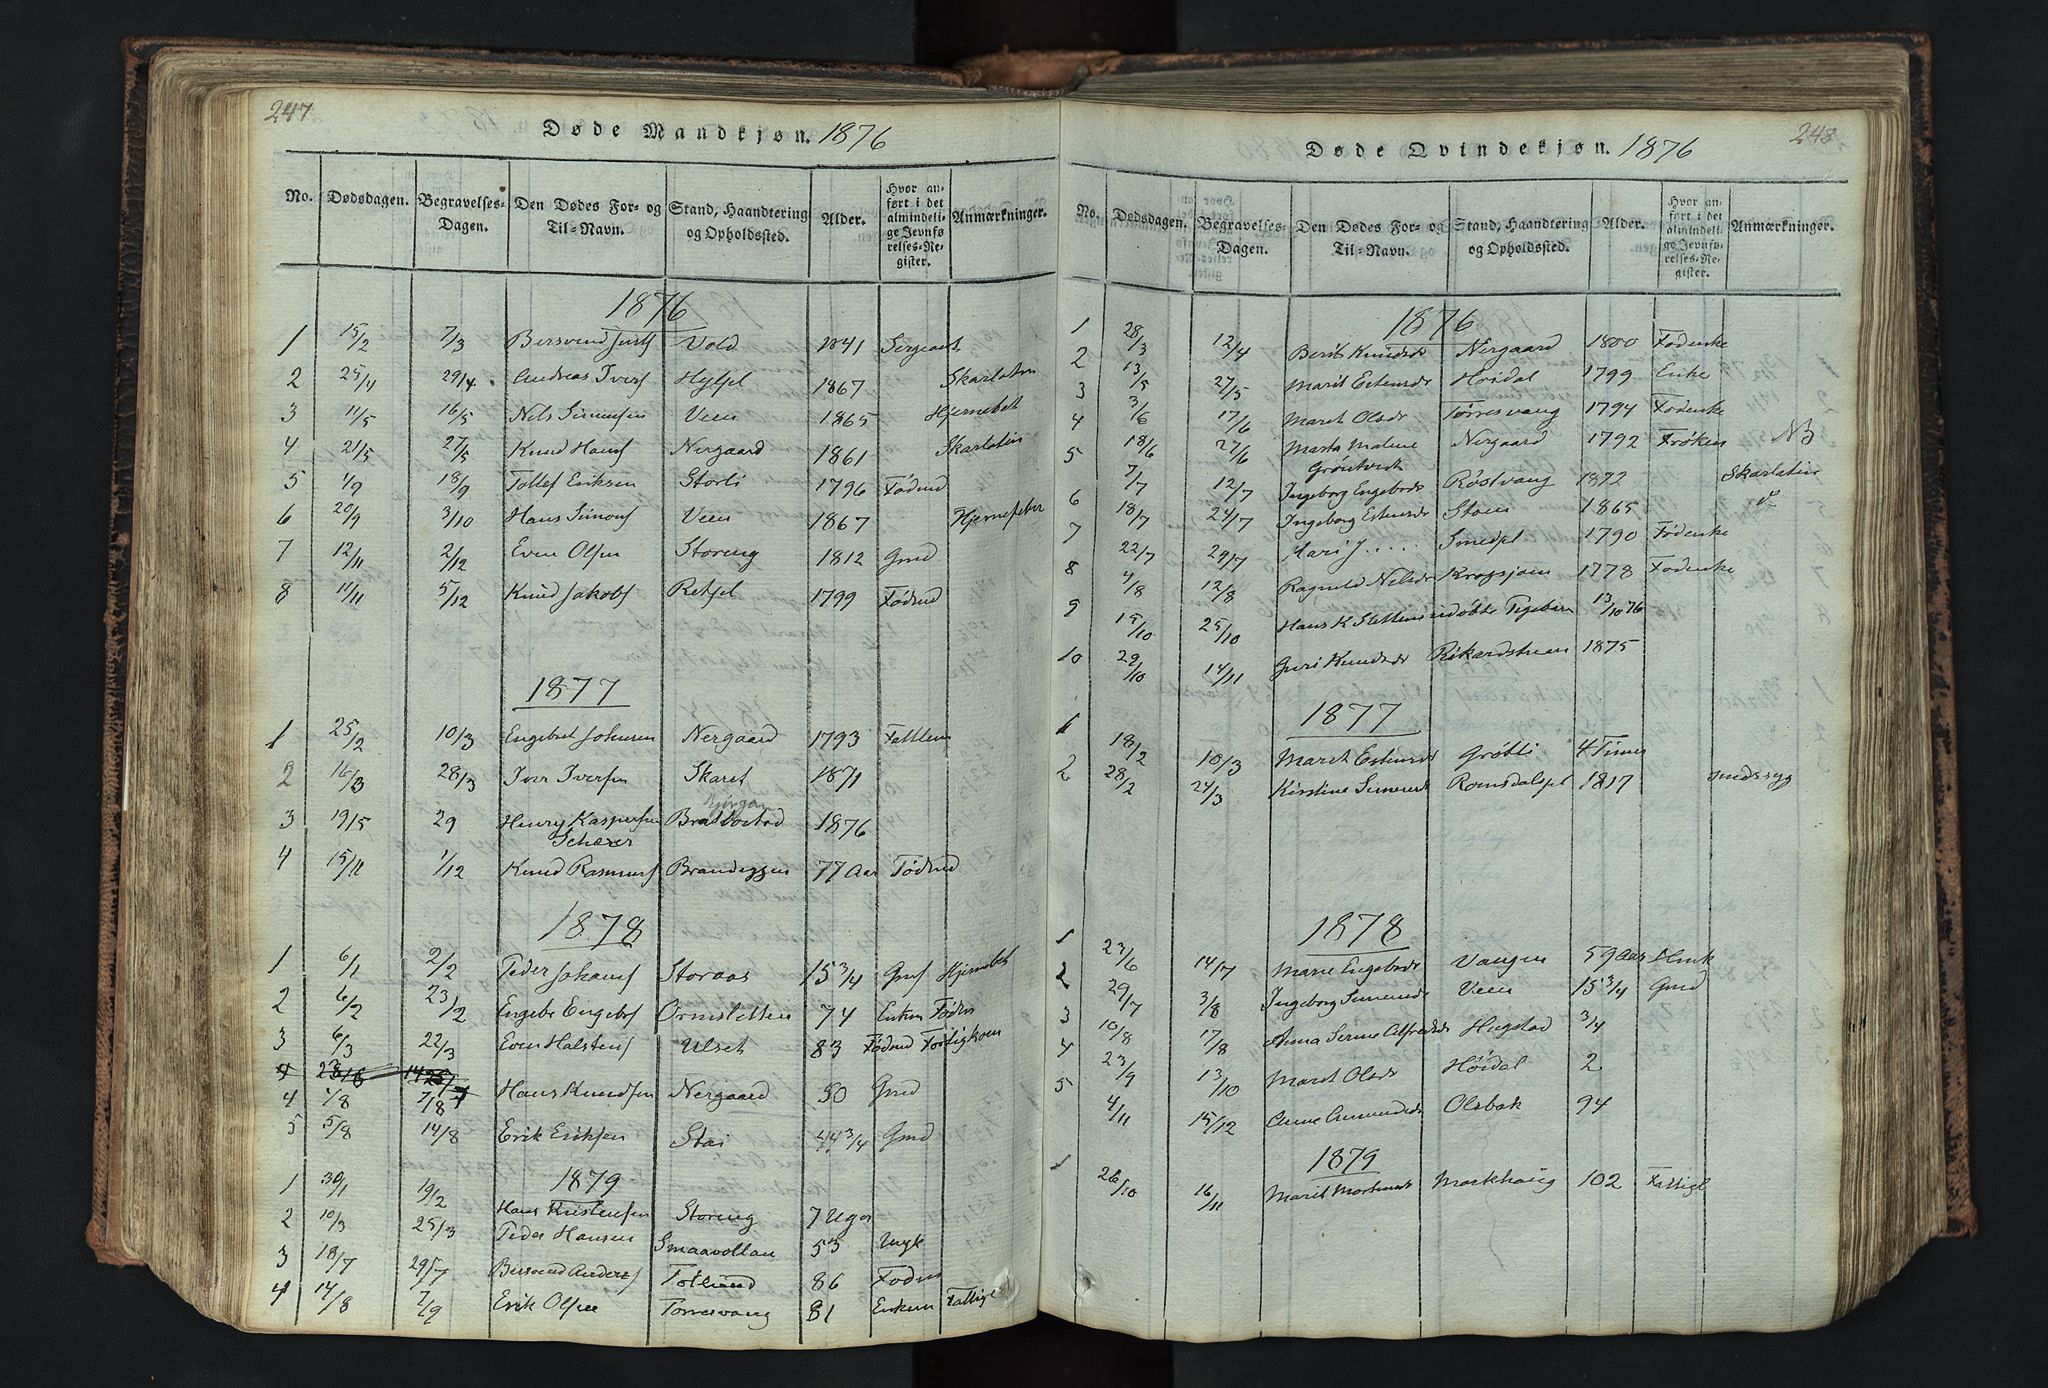 247
Døde Mandkjøn. 1876
No. Dødsdagen. Begravelses-Dagen. Den Dødes For- og Til-Navn. Stand, Haandtering og Opholdssted. Alder. Hvor anført i det almindelige Jevnførelses-Register. Anmærkninger.
1876
1 15/2 7/3 Bersvend Vold 1841 Sergeant
2 25/4 29/4 Andreas Ivers Hytpl 1867 Skarlatin
3 11/5 16/5 Nils Simensen Veen 1865 Hjernebet
4 21/5 27/5 Knud Hans Nergaard 1861 Skarlatin
5 1/9 18/9 Tollef Eriksen Storli 1796 Födrd
6 20/9 3/10 Hans Simons Veen 1867
7 12/11 2/12 Even Olsen Storeng 1812 Gmd
8 11/11 5/12 Knud Jakobs 1799 Födrd
1877
1 25/2 10/3 Engebret Johnsen Nergaard 1793 Fattlem
2 16/3 28/3 Iver Iversen Skaret 1871
3 19/5 29 Henry Kaspersen Brattostad 1876
Scherer
4 15/11 1/12 Knud Rasmus Brandeggen 77 Aar Födrd
1878
1 6/1 2/2 Peder Johans Storaas 15 3/4 Hjernebet
2 6/2 23/2 Engebr Engebs Ormsletten 74 Enkem Födr
3 6/3 22/3 Even Halstens Ulset 83 Födrd
4 1/8 7/8 Hans Knudsen Nergaard 50 Gmd
5 5/8 14/8 Erik Eriksen Stai 44 3/4 Gmd
1879
1 30/1 19/2 Hans Kristensen Storeng 7 Uger
2 10/3 25/3 Peder Hansen Smaavollan 53 Ungk
3 18/7 29/7 Bersvend Anders 86 Födr
4 14/8 7/9 Erik Olsen Torresvang 81 Enkem Fattigl
248
Døde Qvindekjøn. 1876
No. Dødsdagen. Begravelses-Dagen. Den Dødes For- og Til-Navn. Stand, Haandtering og Opholdssted. Alder. Hvor anført i det almindelige Jevnførelses-Register. Anmærkninger.
1876
1 28/3 12/4 Berit Knudsdr Nergaard 1800 Födenke
2 13/5 27/5 Marit Estensdr Höidal 1799 Enke
3 3/6 17/6 Maret Olsdr Törresvang 1794 Födenke
4 18/6 27/6 Marta Malene Nergaard 1792 Fröken NB
Gröntvedt
5 7/7 12/7 Ingeborg Engebrdr Röstvang 1872 Skarlatin
6 18/7 24/7 Ingeborg Estensdr Stoen 1865 do
7 22/7 29/7 Mari J..... Smedpl 1790 Födenke
8 4/8 12/8 Ragnild Nilsdr 1778 Födenke
9 15/10 25/10 Hans K Slettens 13/10 76
10 29/10 14/11 Guri Knudsdr Rikardstuen 1875
1877
1 18/2 10/3 Maret Estensdr Grötli 4 Timer
2 28/2 24/3 Kirstine Simensdr Romsdalspl 1817 sindssyg
1878
1 23/6 14/7 Marie Engebrdr Vangen 59 Aar
2 29/7 3/8 Ingeborg Simensdr Veen 15 3/4 Gmd
3 10/8 17/8 Anna Serine Alfredsdr Hugstad 3/4
4 23/9 13/10 Maret Olsdr Höidal 2
5 4/11 15/12 Anne Amundsdr Olsbak 94
1879
1 26/10 16/11 Marit Mortensdr Morkhaug 102 Fattigl